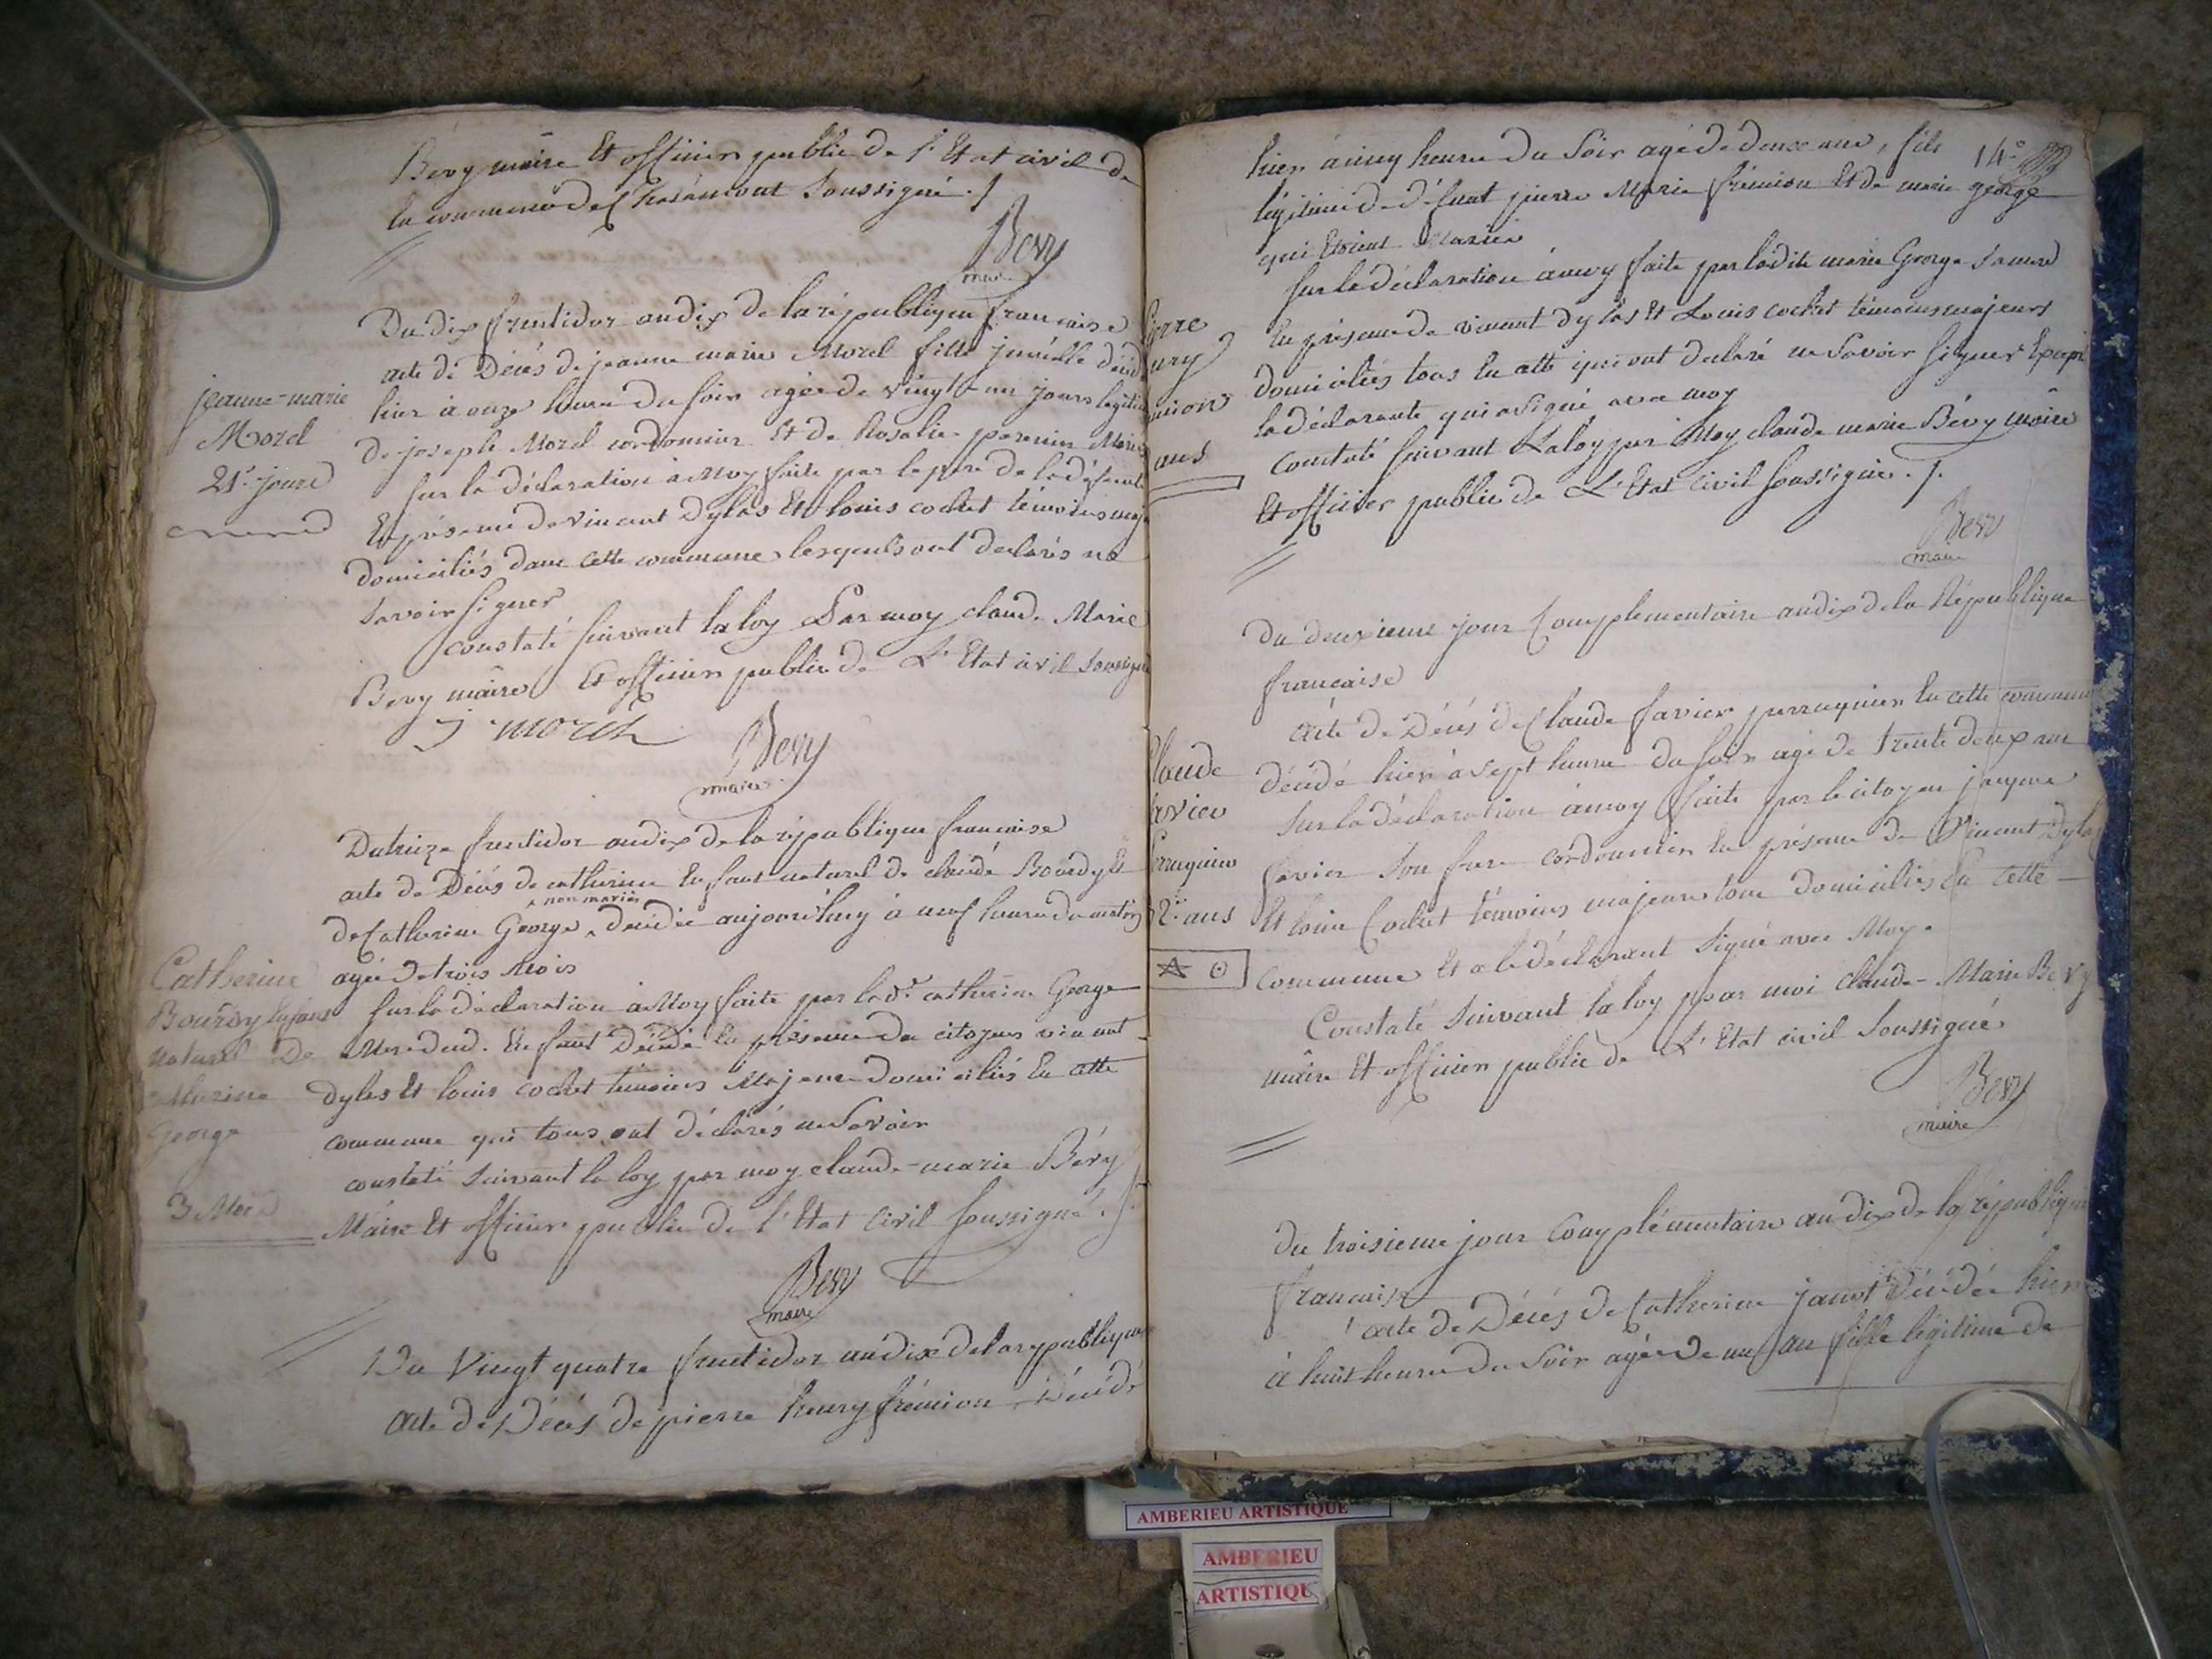 Bevy maire Et officier public de l'Etat civil de
la commune de Soussigné ./.
Bevy
maire
Du dix fructidor an dix de la république francaise
acte de Décés de jeanne marie Morel fille décéd
hier à onze heure du soir agée de vingt-un jours legitim
de joseph Morel cordonnier Et de Rosalie
jeanne-marie
Morel
21 jours
sur la déclaration à Moy faite par le pere de la défunte
En présence de vincent Dylas Et louis cochet témoins maj
domiciliés dans cette commune lesquels ont declarés ne
savoir signer
constaté suivant la loy Par moy claude Marie
Bevy maire Et officier public de L'Etat civil soussigné
j morel
Bevy
maire
Du treize fructidor an dix de la république francaise
acte de Décés de catherine Enfant naturel de claude Bourdy Et
de Catherine George non mariés décédée aujourd'huy à neuf heure du matin
agée de trois Mois
Catherine
Bourdy Enfant
naturel De
catherine
George
3 Mois
sur la déclaration à Moy faite par lad.e catherine George
Mere dud. Enfant Décédé En présence du citoyens vincent
dylas Et louis cochet témoins Majeurs Domiciliés En cette
commune qui tous ont déclarés ne Savoir
constaté suivant la loy par moy claude-marie Bévy
Maire Et officier public de l'Etat Civil soussigné ./.
Bevy
maire
Du Vingt quatre fructidor an dix de la république
acte de Décés de pierre henry frémion Décédé
14e
hier à cinq heure du Soir agé de douze ans, fils
légitime de défunt pierre Marie frémion Et de marie george
qui Etoient Mariés
ierre
enry
mion
ans
sur la déclaration à moy faite par ladite marie George sa mere
En présence de vincent dylas Et Louis cochet témoins majeurs
domiciliés tous En cette qui ont declaré ne Savoir signer Excepté
la déclarante qui a signé avec moy
constaté suivant La loy par Moy claude marie Bévy maire
Et officier public de L'Etat civil soussigné ./.
Bevy
maire
Du deuxieme jour Complementaire an dix de la République
francaise
acte de Décés de Claude favier perruquier En cette commune
décédé hier à sept heure du soir agé de trente deux ans
laude
avier
erruquier
2 ans
Sur la déclaration à moy faite par le citoyen jacques
favier Son frere cordonnier En présence de Vincent Dylas
Et louis Cochet témoins majeurs tous domiciliés En cette
Commune Et a le déclarant Signé avec Moy.
Constaté Suivant la loy par moi claude-Marie Bevy
maire Et officier public de L'Etat civil Soussigné
Bevy
maire
du troisieme jour Complémentaire an dix de la république
francaise
acte de Décés de Catherine janot Décédée hier
à huit heure du Soir agée de un an fille légitime de
AMBERIEU ARTISTIQUE
AMBERIEU
ARTISTIQU